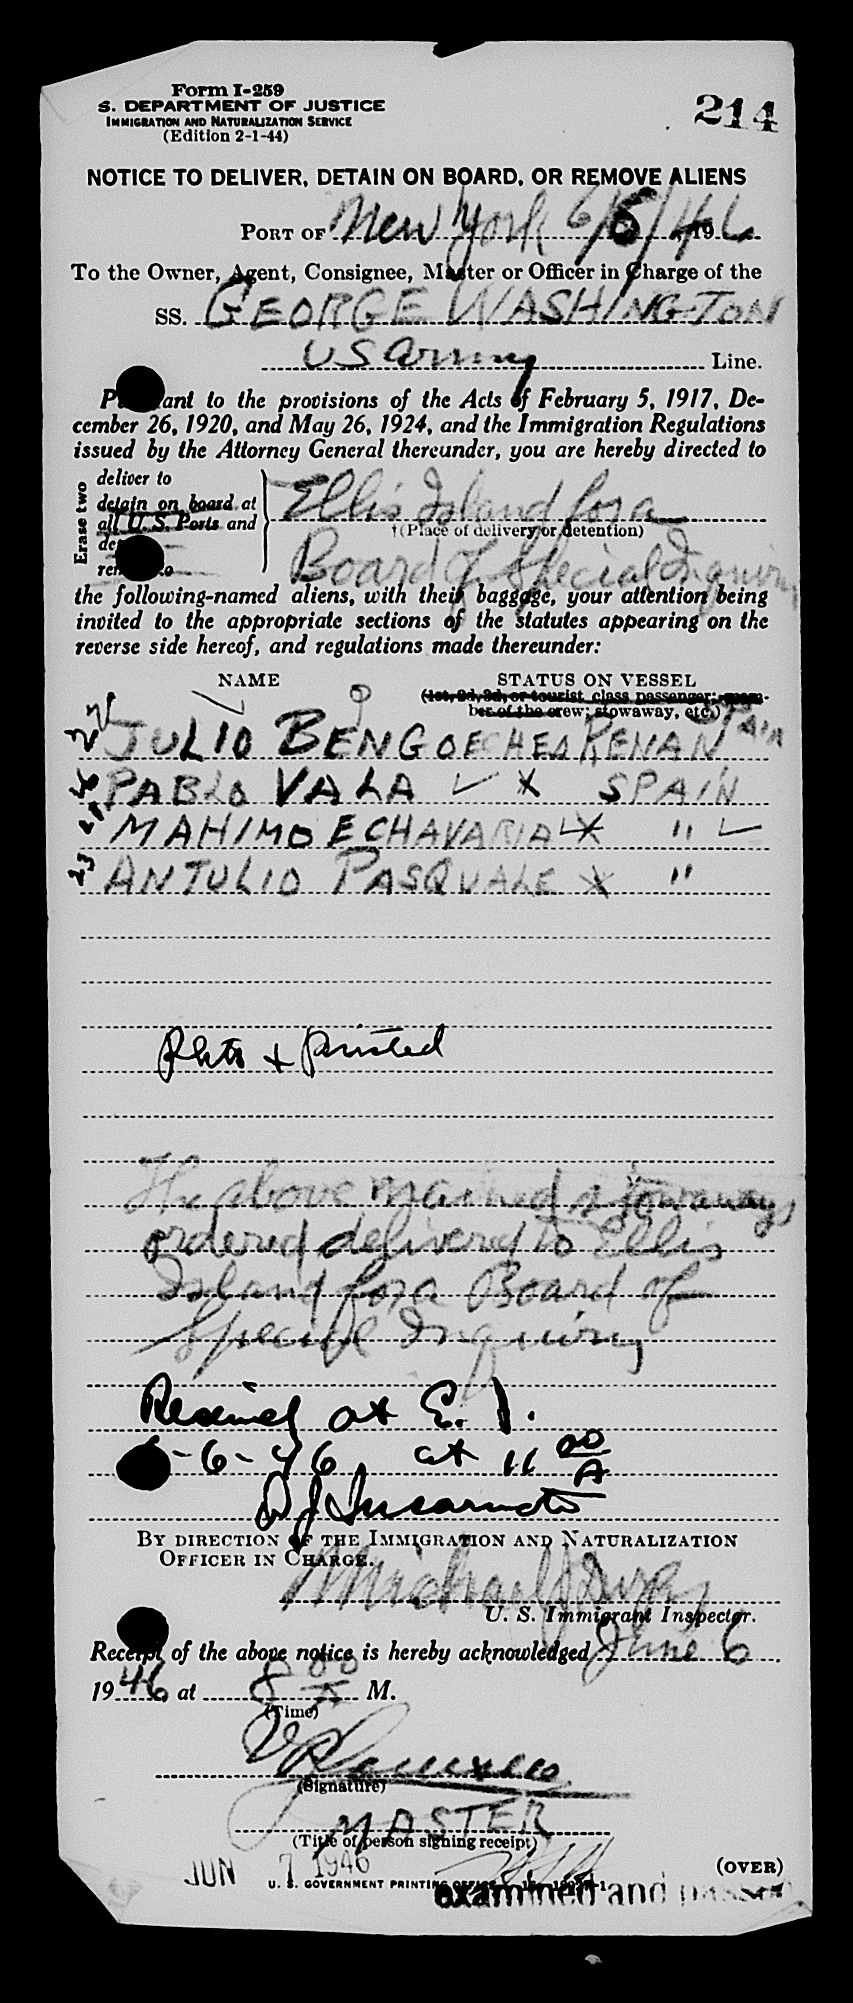 Form I-259
S. DEPARTMENT OF JUSTICE
IMMIGRATION AND NATURALIZATION SERVICE
(Edition 2-1-44)
214
NOTICE TO DELIVER, DETAIN ON BOARD, OR REMOVE ALIENS
PORT OF New York 6/6/46 19
To the Owner, Agent, Consignee, Master or Officer in Charge of the
SS. GEORGE WASHINGTON
US Army Line.
P ant to the provisions of the Acts of February 5, 1917, De-
cember 26, 1920, and May 26, 1924, and the Immigration Regulations
issued by the Attorney General thereunder, you are hereby directed to
Erase two
deliver to
detain on board at
all U.S. Ports and
Ellis Island for a
†(Place of delivery or detention)
Board of Special Inquiry
the following-named aliens, with their baggage, your attention being
invited to the appropriate sections of the statutes appearing on the
reverse side hereof, and regulations made thereunder:
NAME STATUS ON VESSEL
(1st, 2d, 3d, or tourist class passenger; mem-
ber of the crew; stowaway, etc.)
JULIO BENGOECHEA SPAIN
PABLO VALA SPAIN
MAHIMO ECHAVARIA "
23 ANTULIO PASQUALE "
Photo + Printed
The above marked stowaways
ordered delivered to Ellis
Island for a Board of
Special Inquiry
Received at E. I.
-6-46 at 11 00 A
BY DIRECTION OF THE IMMIGRATION AND NATURALIZATION
OFFICER IN CHARGE.
Michael J
U. S. Immigrant Inspector.
Receipt of the above notice is hereby acknowledged June 6
1946 at 8 00 A M.
(Time)
(Signature)
MASTER
(Title of person signing receipt)
JUN 7 1946
(OVER)
U. S. GOVERNMENT PRINTING OFFICE
examined and passed